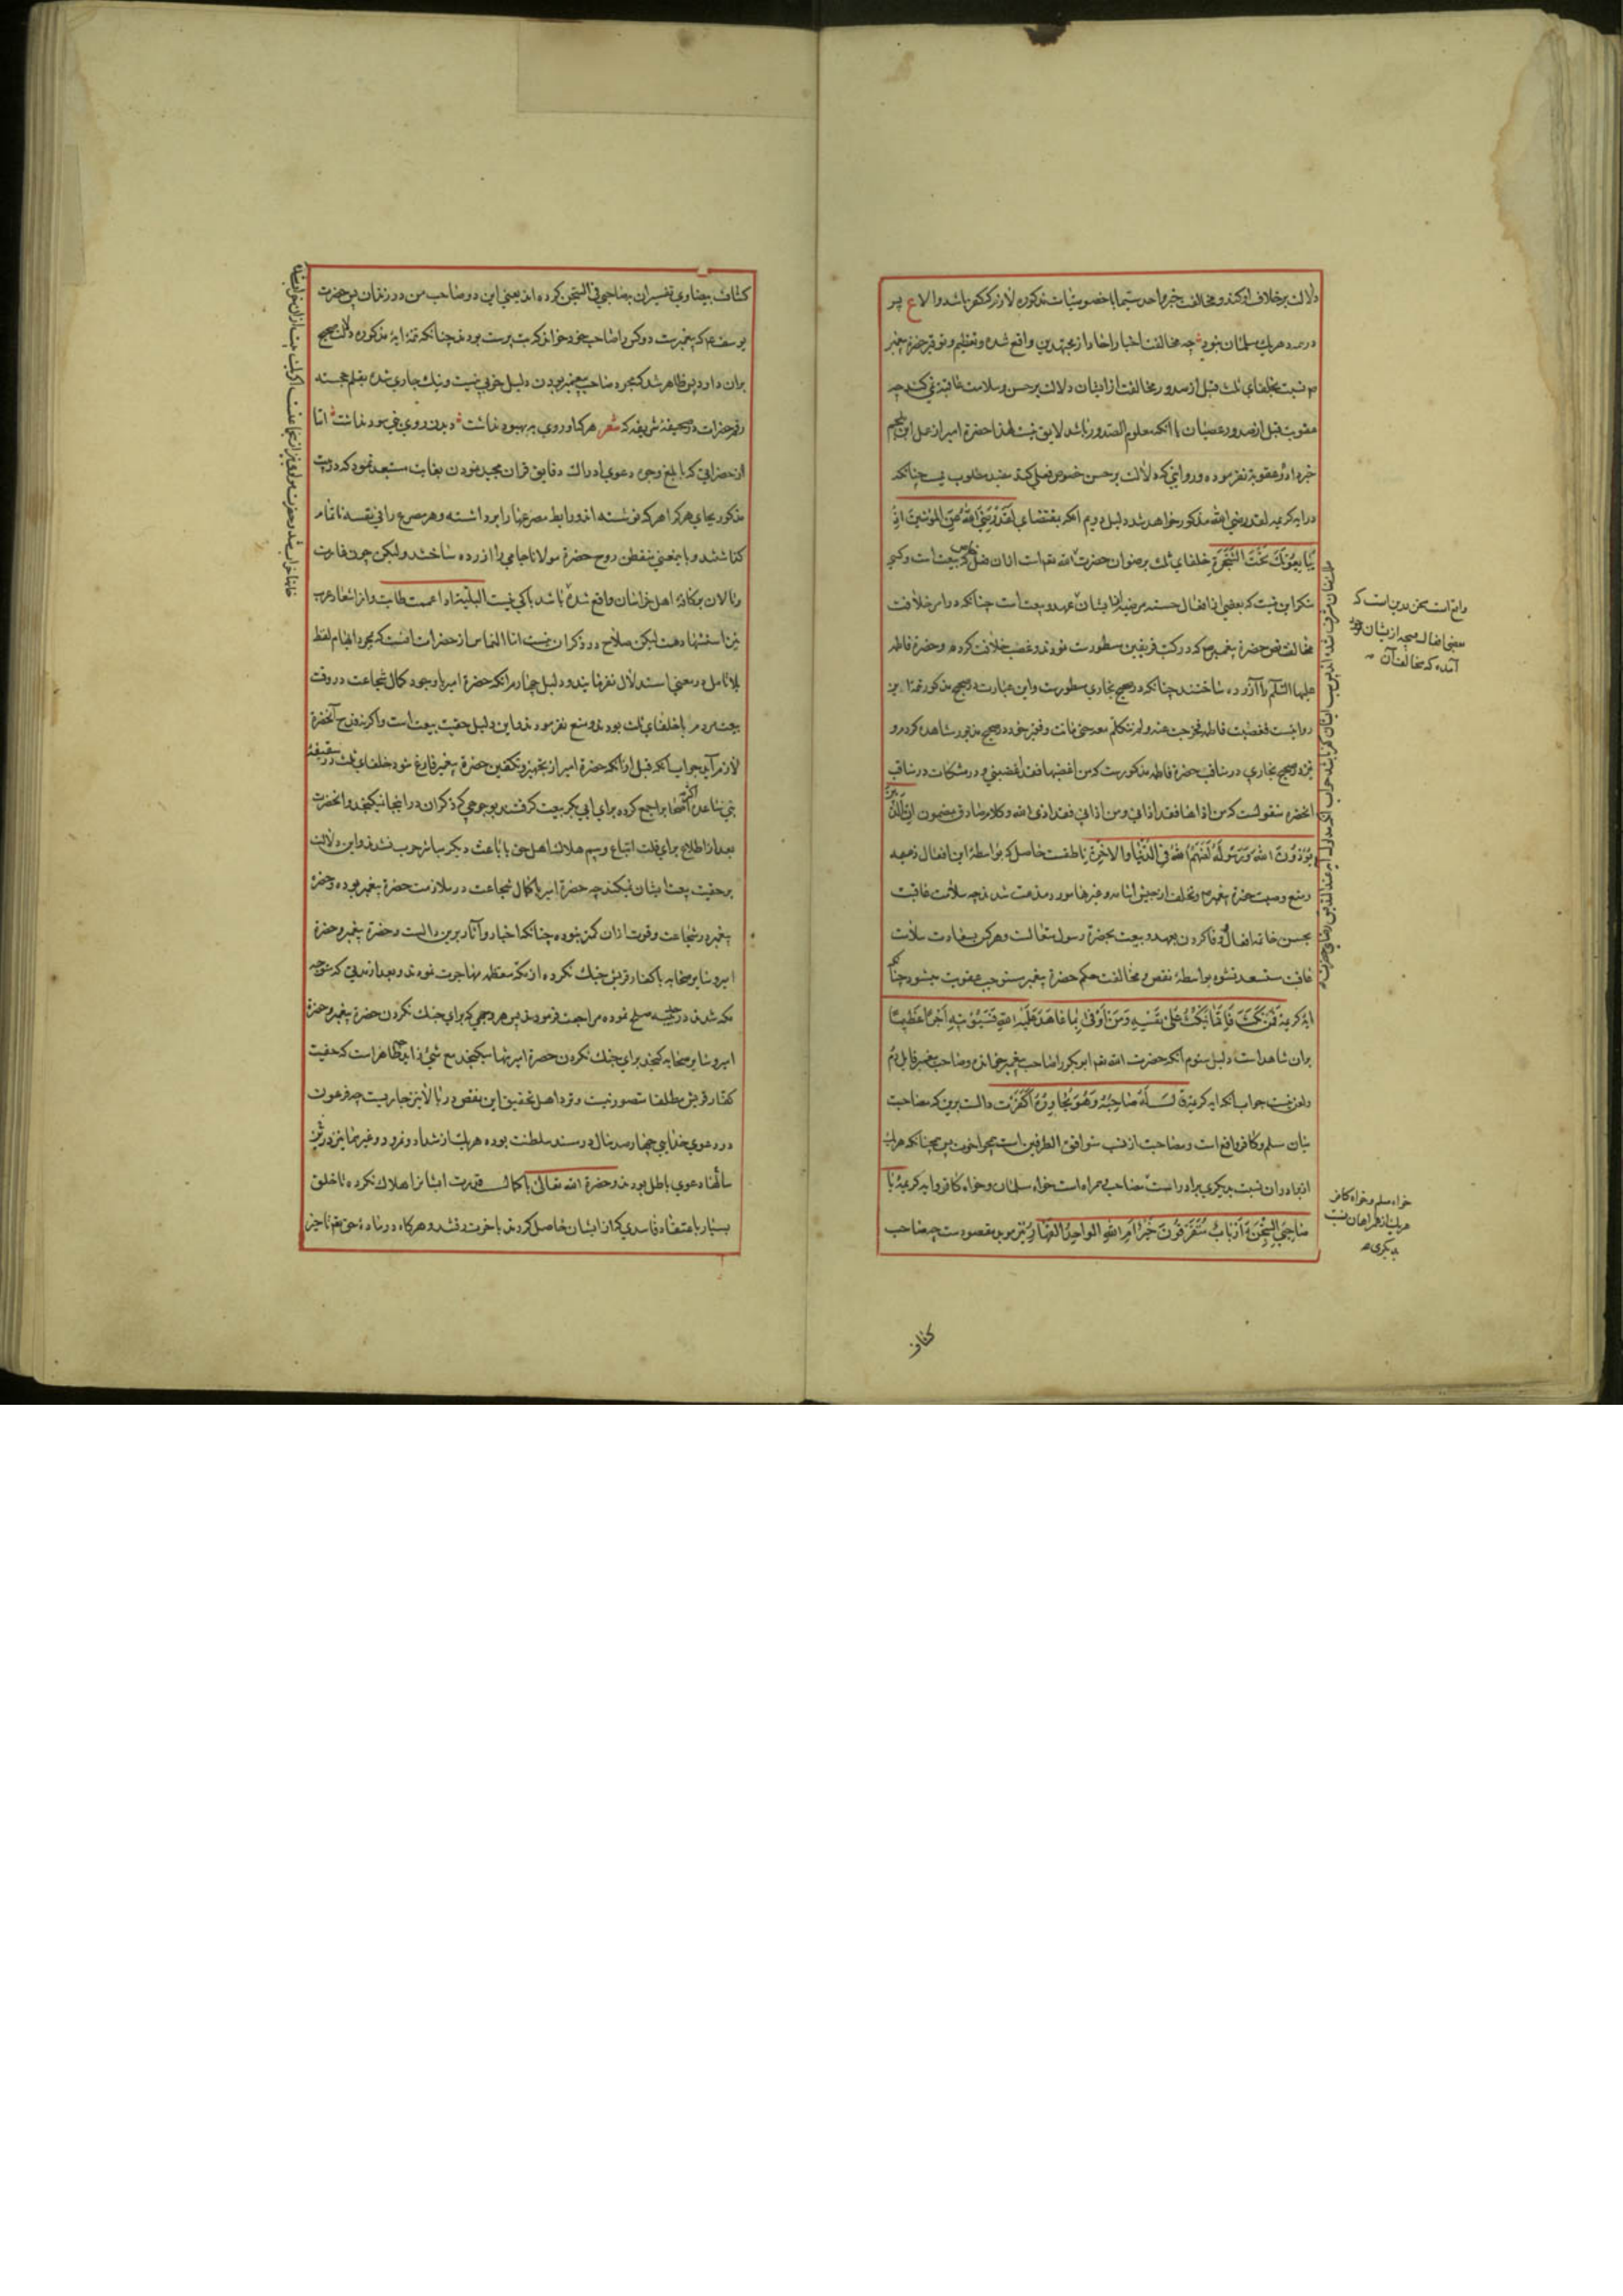 دلالت بر خلاف او کند و مخالفت خبر واحد سیما با خصوصیات مذکوره لازم که کفر باشد والا ع پس
در مدد هر یک سلمان نبود چه مخالفت اخبار احاد از مجتهدین واقع شده و تعظیم و توقیر حضرة پیغمبر
م نسبت بخلفای ثلث قبل از صدور مخالفت از ایشان دلالت بر حسن و سلامت عاقبة نمی کند چه
عقوبت قبل از صدور عصیان با آنکه معلوم الصدور باشد لایق نیست لهذا حضرة امیر از عمل ابن ملجم
خبر داد و عقوبة نفرموده و روایتی که دلالت بر حسن خصوص فعلی کند مفید مطلوب نیست چنانکه
در آیه کریمه لقد رضی الله مذکور خواهد شد دلیل دویم آنکه بمقتضای لَقَدْ رَضِيَ اللهُ عَنِ المُؤمِنِينَ اِذْ
يُبَايِعُونَكَ تَحْتَ الشَّجَرَةِ خلفای ثلث برضوان حضرت الله تعم
منکر این نیست که بعضی از افعال حسنه مرضیه از ایشان
مخالف نص حضرة پیغمبر م که در کتب فریقین مسطور است نمودند و غصب خلافت کردند و حضرة فاطمه
علیها السلام را آزرده ساختند چنانکه در صحیح بخاری مسطور است و این عبارت در صحیح مذکور
روایتست فغضبت فاطمه فخرجت عنه ولم تتکلم معه حتی ماتت
نیز در صحیح بخاری در مناقب حضرة فاطمه مذکورست که من اغضبها فقد اغضبنی و در مشکات در مناقب
انحضرة منقولست که من اذاها فقد اذانی ومن اذانی فقد اذی الله وکلام صادق مضمون اِنَّ الَّذِينَ
يُؤْذُونَ اللهَ وَرَسُولَهُ لَعَنَهُمُ اللهُ فِي الدُّنْيَا وَالاخِرَةِ ناطقست حاصل که بواسطهٔ این افعال ذمیمه
و منع وصیت حضرة پیغمبر م و تخلف از جیش اسامه و غیرها مورد مذمت شدند چه سلامت عاقبت
بحسن خاتمه افعال و وفا کردن بعهد و بیعت بحضرة رسول متعالست و هر کس بسعادت سلامت
عاقبت مستسعد نشود بواسطهٔ نقض و مخالفت حکم حضرة پیغمبر مستوجب عقوبت میشود چنانکه
ایه کریمه فَمَنْ نَكَثَ فَاِنَّمَا يَنْكُثُ عَلىٰ نَفْسِهِ وَمَنْ اَوْفىٰ بِمَا عَاهَدَ عَلَيْهِ اللهَ فَسَيُؤْتِيهِ اَجْرًا عَظِيمًا
بران شاهد است دلیل سئوم آنکه حضرت الله تعم ابوبکر را صاحب پیغمبر خوانده و صاحب پیغمبر قابل ذم
و لعن نیست جواب آنکه ایه کریمه قَالَ لَهُ صَاحِبُهُ وَهُوَ يُحَاوِرُهُ اَكَفَرْتَ دالست برین که مصاحبت
میان مسلم و کافر واقع است و مصاحبت از نسب متوافق الطرفین است همچو اخوت پس همچنانکه هر یک
از برادران نسبت بدیگری برادر است مصاحب همراه است خواه سلمان و خواه کافر و ایه کریمه يَا
صَاحِبَيِ السِّجْنِ ءَاَرْبَابٌ مُتَفَرِّقُونَ خَيْرٌ اَمِ اللهُ الْوَاحِدُ الْقَهَّارُ نیز موید مقصودست چه صاحب
واقع است سخن بدین است که
بعضی افعال قبیحه از ایشان بوجود
آمده که مخالف آن
خواه مسلم و خواه کافر
هر یک از همراهان نسبت
بدیگری
کشاف
کشاف بیضاوی تفسیر ان بصاحبی فی السجن کرده اند یعنی ای دو صاحب من در زندان پس حضرت
یوسف م که پیغمبرست دو کس را صاحب خود خواند که بت پرست بودند چنانکه تتمهٔ ایهٔ مذکوره دلالت صحیح
بران دارد پس ظاهر شد که مجرد صاحب پیغمبر بودن دلیل خوبی نیست و نیک جاری شده بقلم خجسته
رقم حضرات در صحیفهٔ شریفه که شعر هر کرا روی به بهبود نداشت دیدن روی نبی سود نداشت اما
از حضراتی که با بلغ وجوه دعوی ادراک دقایق قران مجید نمودن بغایت مستبعد نمود که در بیت
مذکور بجای هر کرا هر که نوشته اند و رابط مصرعها را برداشته و هر مصرع را فی نفسه ناتمام
گذاشتند و با ینمعنی متفطن روح حضرة مولانا جامی را ازرده ساختند ولیکن چون غارت
و تالان بر کافهٔ اهل خراسان واقع شده باشد باکی نیست البلية اذا عمت طابت و از اشعار عرب
نیز استشهاد هست لیکن صلاح در ذکر ان نیست اما التماس از حضرات انست که بمجرد ایهام لفظ
بلا تامل در معنی استدلال نفرمایند و دلیل چهارم انکه حضرة امیر با وجود کمال شجاعت در وقت
بیعت مردم با خلفای ثلث بودند و منع نفرمودند و این دلیل حقیت بیعت است و اگرنه قدح آنحضرة
لازم آید جواب آنکه قبل از آنکه حضرة امیر از تجهیز و تکفین حضرة پیغمبر فارغ شود خلفای ثلث در سقیفهٔ
بنی ساعده اکثر اصحاب را جمع کرده برای ابی بکر بیعت گرفتند بوجوهی که ذکر ان در اینجا نیکنجد و انحضرت
بعد از اطلاع برای قلت اتباع و بیم هلاک اهل حق یا باعث دیگر مباشر حرب نشدند و این دلالت
بر حقیت بیعت ایشان نمیکند چه حضرة امیر با کمال شجاعت در ملازمت حضرة پیغمبر بوده و حضرة
پیغمبر در شجاعت و قوت از ان کمتر نبوده چنانکه اخبار و آثار برین دالست و حضرة پیغمبر و حضرة
امیر و سایر صحابه با کفار قریش جنگ نکرده از مکه معظمه مهاجرت نمودند و بعد از مدتی که متوجه
مکه شدند در حدیبیه صلح نموده مراجعت فرمودند پس هر وجهی که برای جنک نکردن حضرة پیغمبر و حضرة
امیر و سایر صحابه کنجد برای جنک نکردن حضرة امیر تنها میکنجد مع شیء زاید چه ظاهر است که حقیت
کفار قریش مطلقا متصور نیست و نزد اهل تحقیق این نقض در بالا نیز جاریست چه فرعون
در دعوی خدایی چهار صد سال در مسند سلطنت بوده و هر یک از شداد و نمرود و غیرهما نیز در
سالها دعوی باطل بودند و حضرة الله تعالی با کمال قدرت ایشانرا هلاک نکرده تا خلق
بسیار باعتقاد فاسدی که از ایشان حاصل کردند باخرت رفتند و هرگاه در مادهٔ حق تعم تاخیر